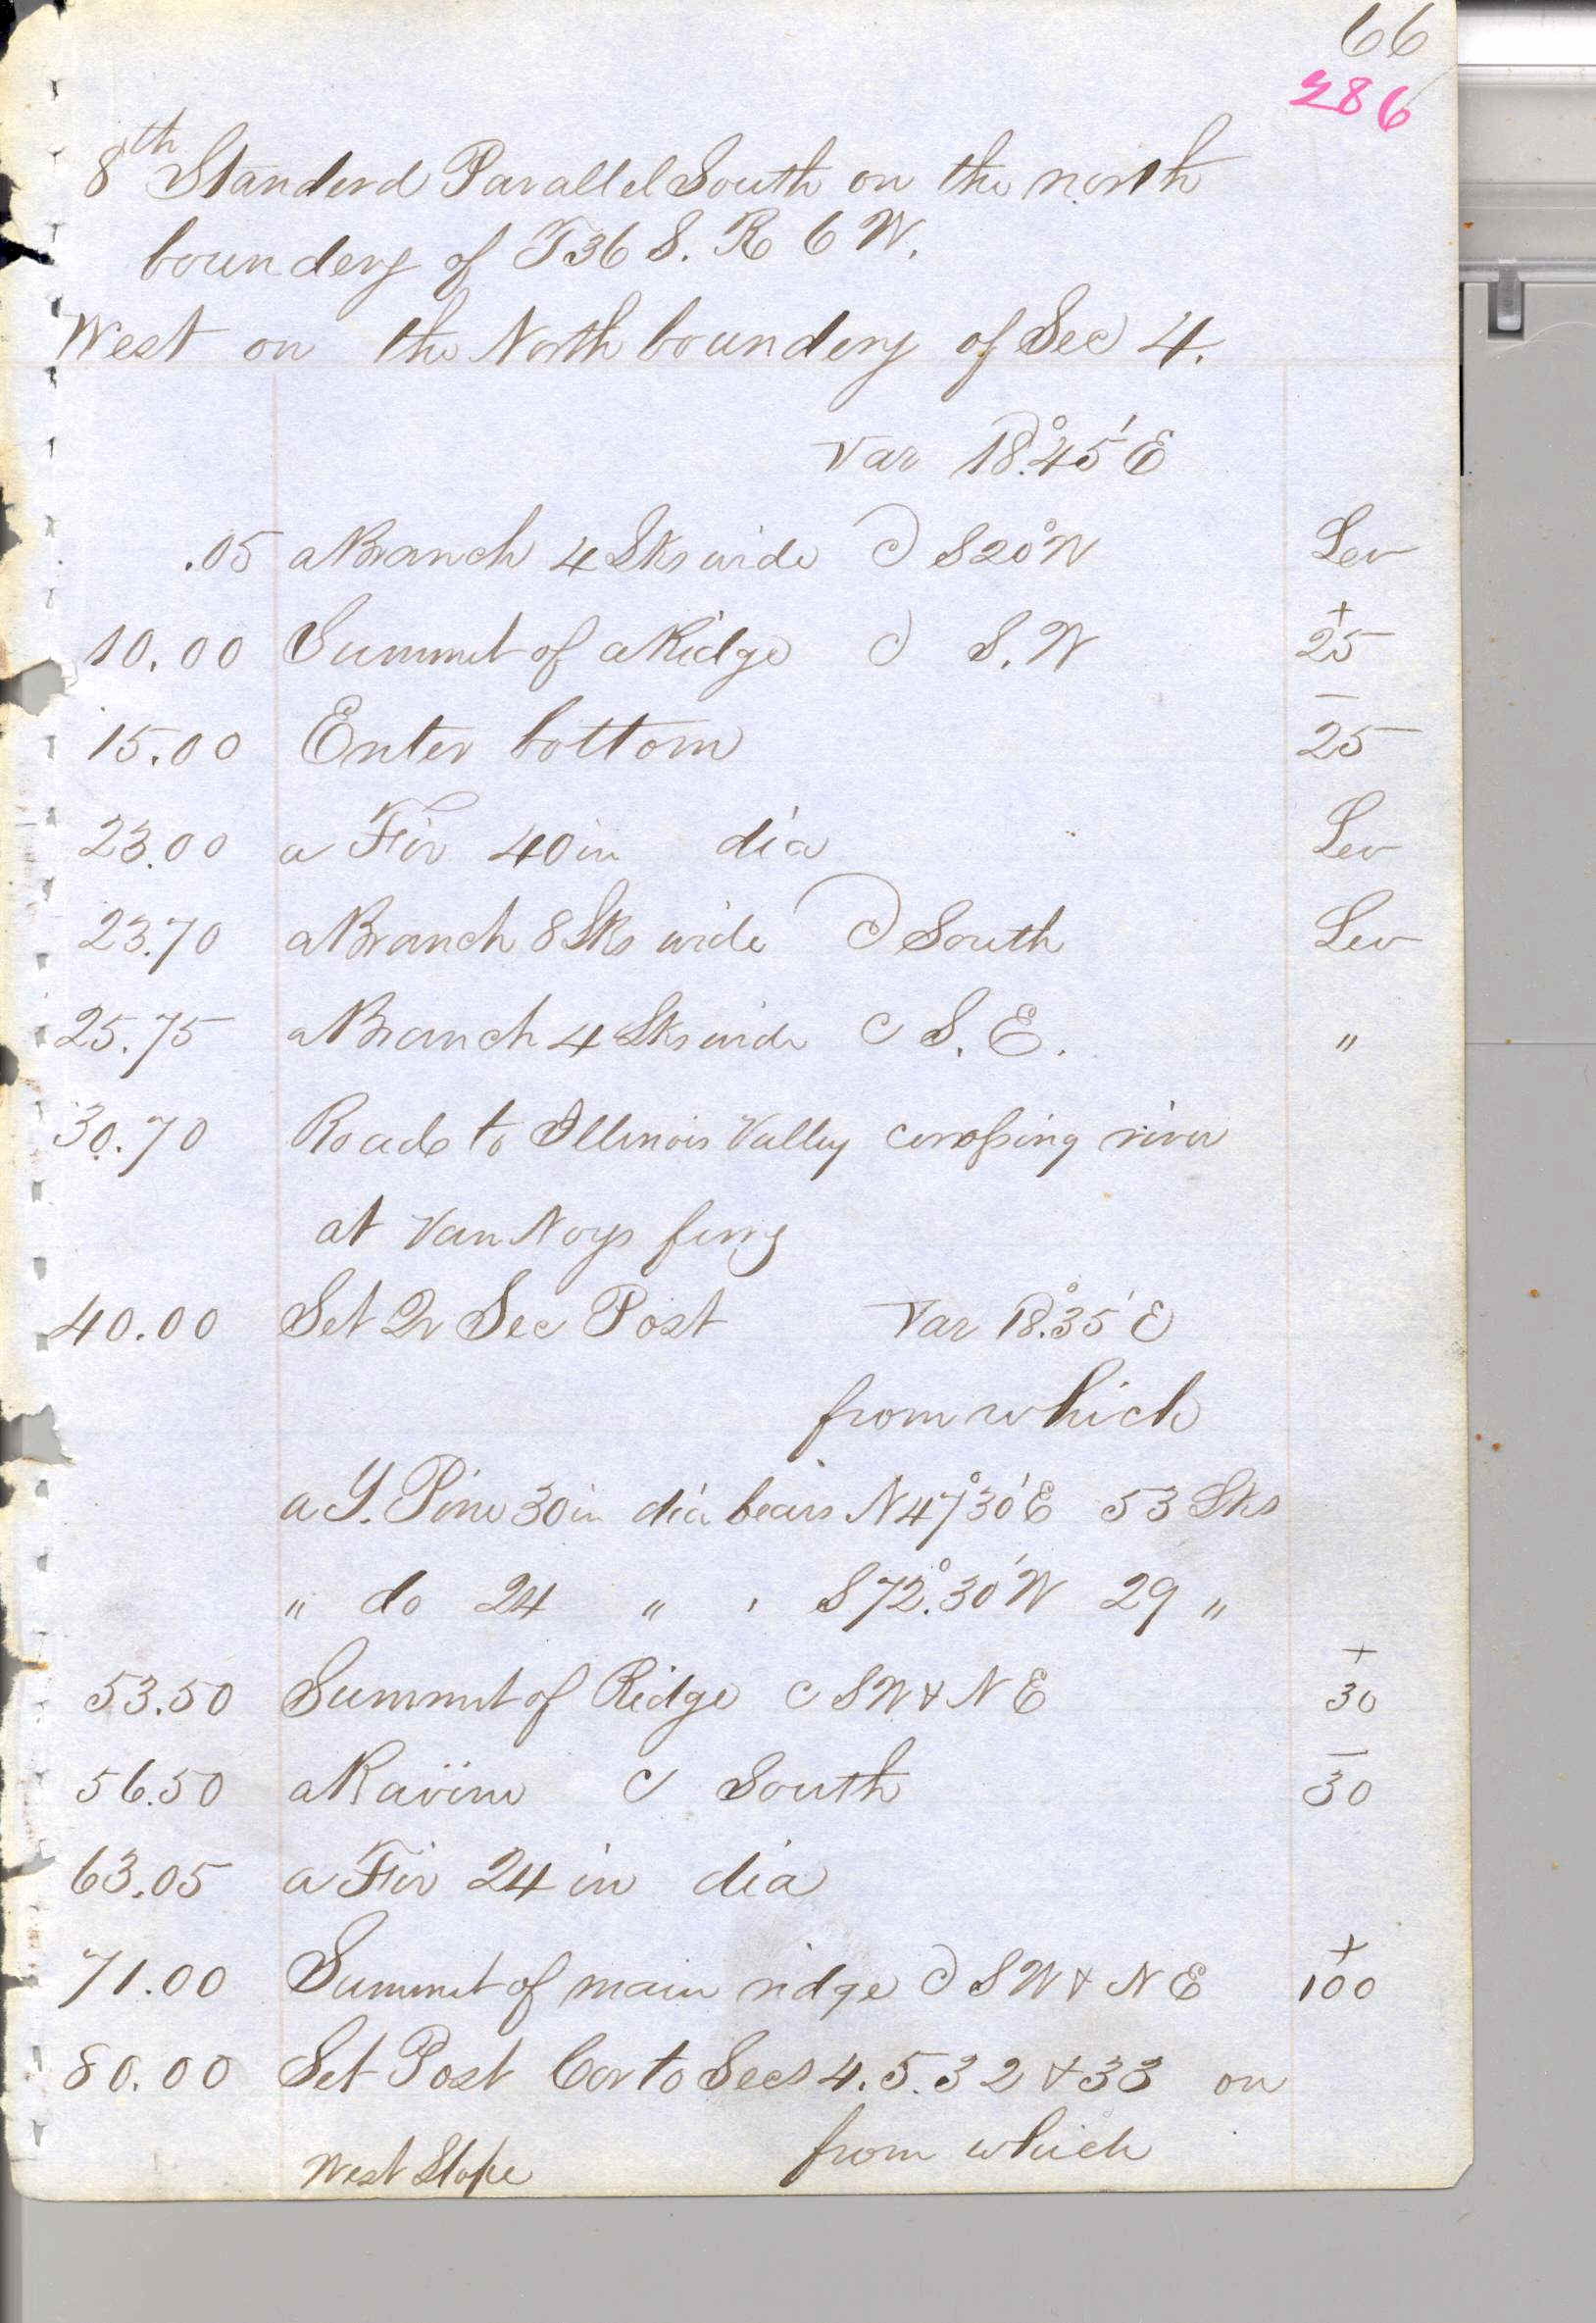 66
286
8th Standerd Parallel South on the north
boundery of T36 S. R 6 W.
West on the North boundery of Sec 4.
Var 18°.45' E
.05 a Branch 4 Lks wide C S20°W Lev
10.00 Summit of a Ridge C S.W + 25
15.00 Enter bottom - 25
23.00 a Fir 40 in dia Lev
23.70 a Branch 8 Lks wide C South Lev
25.75 a Branch 4 Lks wide C S.E. "
30.70 Road to Illinois Valley crossing river
at Van Noys ferry
40.00 Set Qr Sec Post Var 18°.35' E
from which
a Y. Pine 30 in dia bears N47°30'E 53 Lks
" do 24 " " S72°.30'W 29 "
53.50 Summit of Ridge C SW & NE + 30
56.50 a Ravine C South - 30
63.05 a Fir 24 in dia
71.00 Summit of main ridge C SW & NE + 100
80.00 Set Post Cor to Secs 4.5.32 & 33 on
West Slope from which